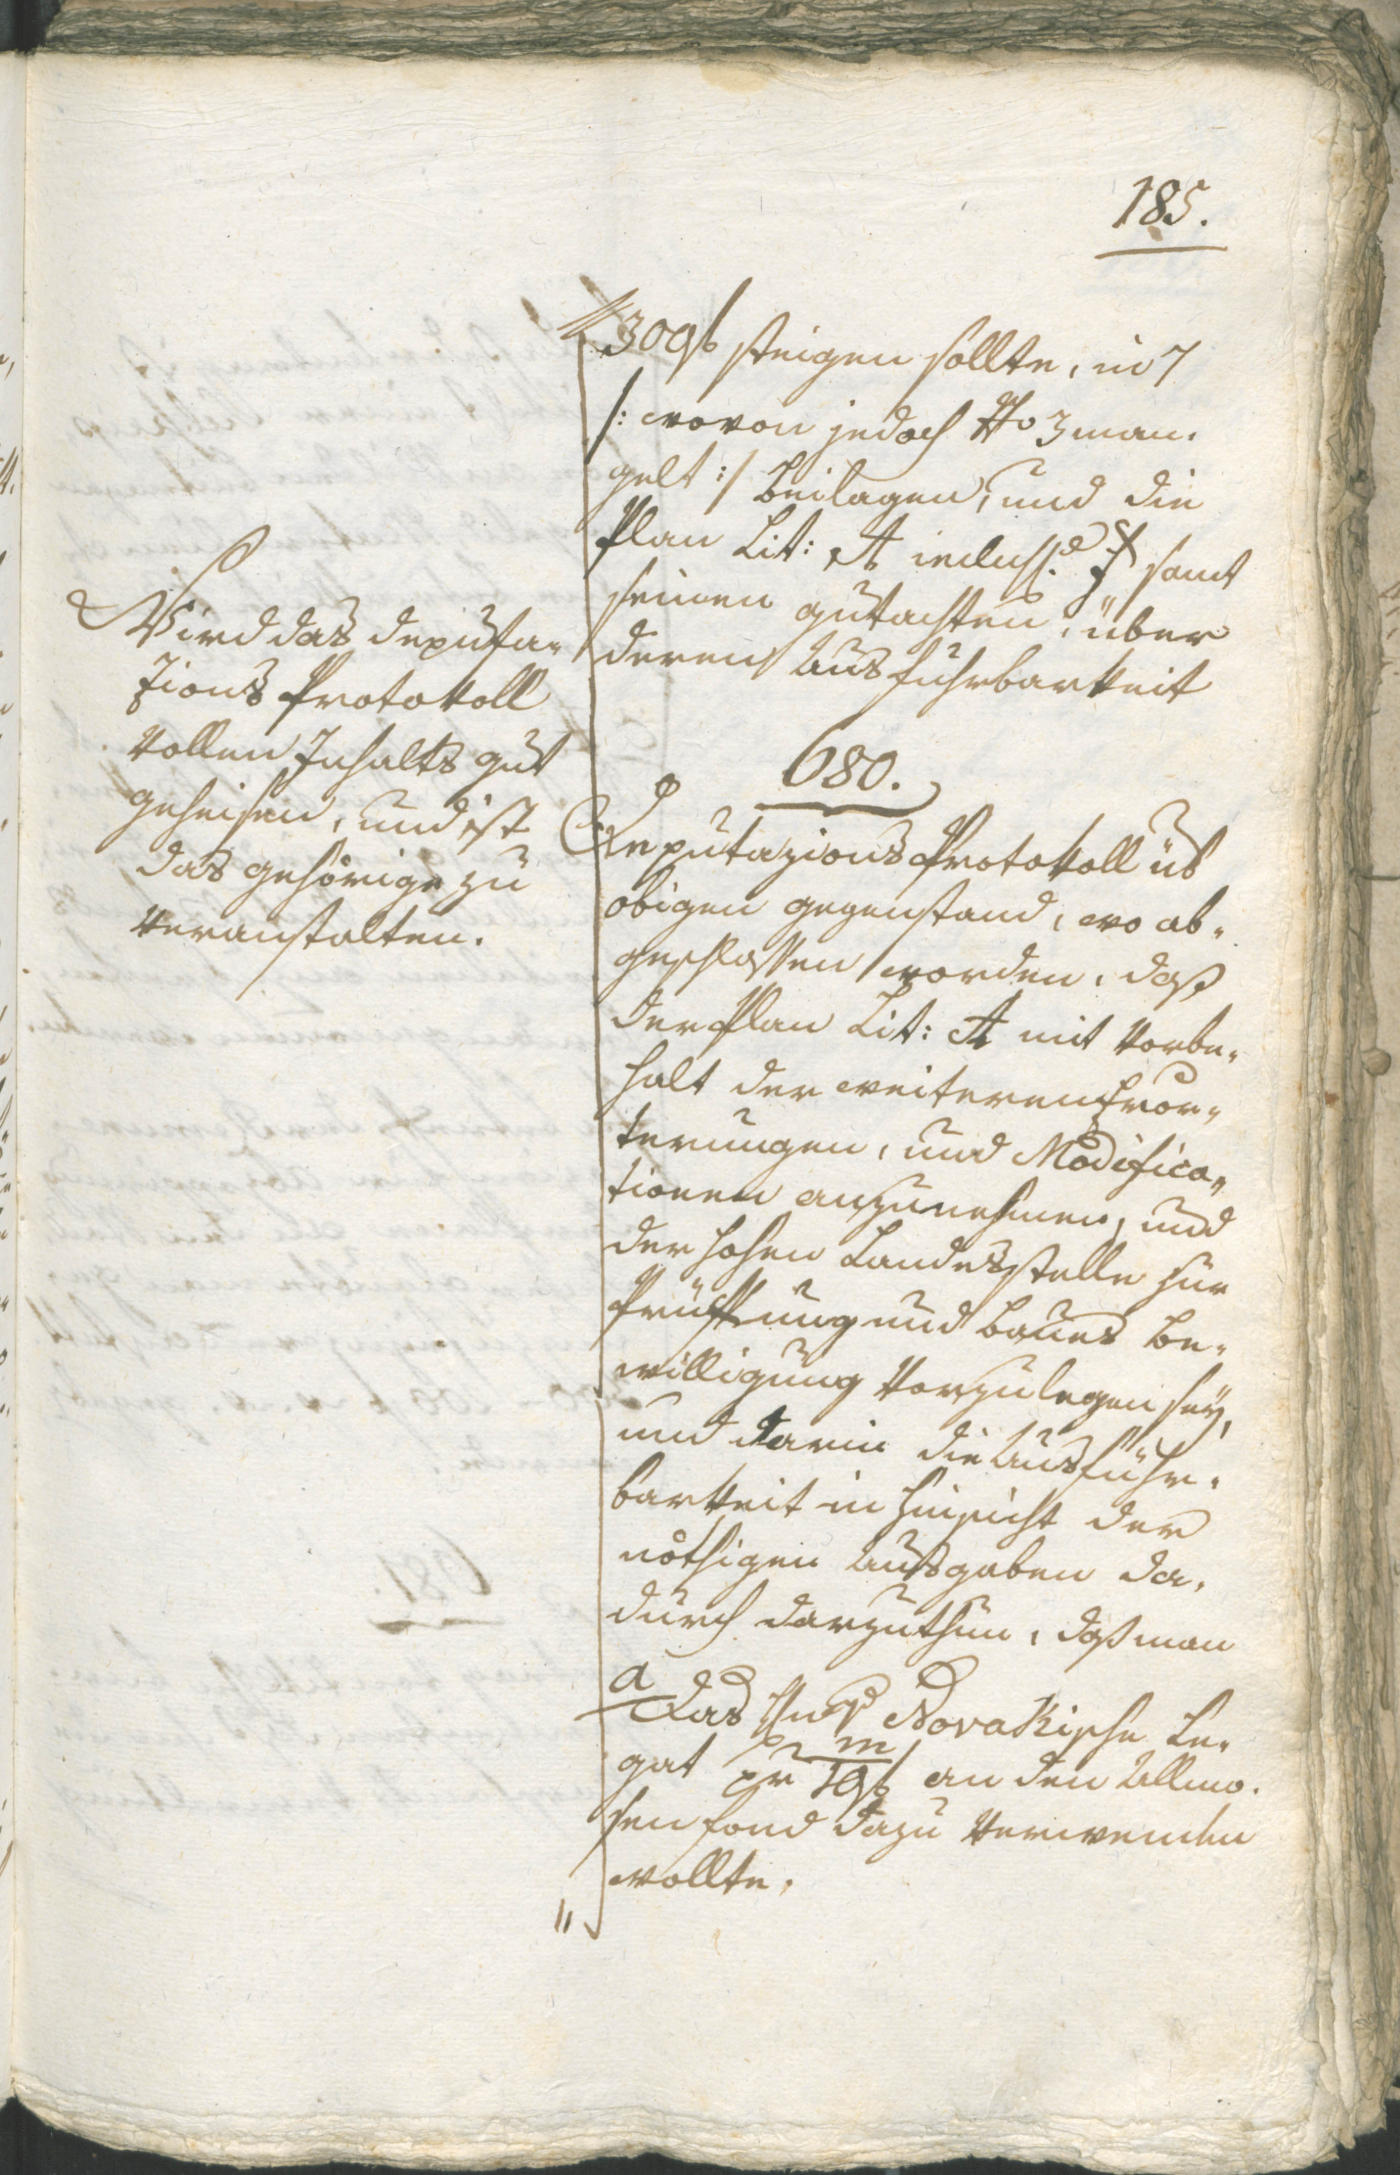 185.
30 g/b steigen sollte, in 7
/: wovon jedoch No 3 man-
gelt :/ Beilagen, und die
Plan Lit: A inclus. F samt
seinen gutachten, über
deren Ausführbarkeit
Wird das Deputa-
zions Protokoll
vollen Inhalts gut
geheisen, und ist
das gehörige zu
veranstalten.
680.
Deputazions Protokoll üb
obigen gegenstand, wo ab-
geschlossen worden, daß
der Plan Lit: A mit Vorbe-
halt der weiteren Erör-
terungen, und Modifica-
tionen anzunehmen, und
der hohen Landesstelle zur
Prüffung und Baues Be-
willigung vorzulegen sey,
und darin die Ausführ-
barkeit in Hinsicht der
nöthigen Ausgaben da-
durch darzuthun, daß man
a
das Novakische Le-
gat pr an den Allmo-
senfond dazu verwenden
wollte,